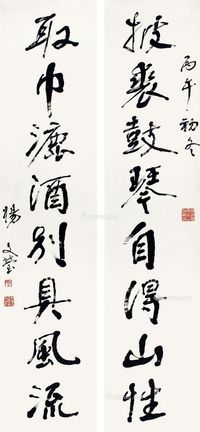 丙午初冬
披裘鼓琴自得山性
取巾漉酒別具風流
楊文瑩